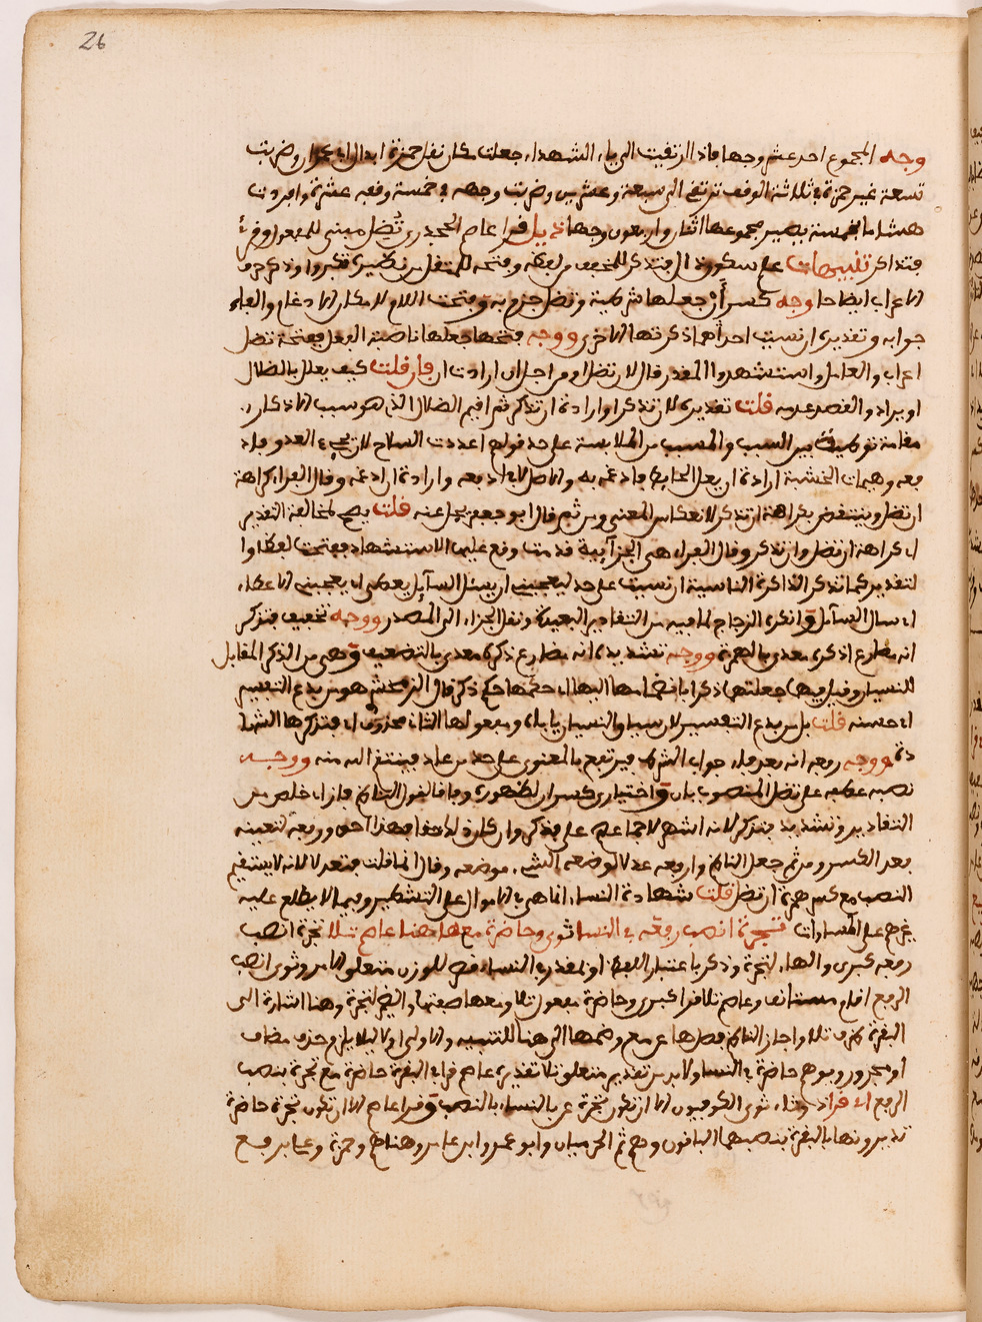 26
وجه المجموع احد عشر وجها فاذا ارتقيت الى ياء الشهداء جعلت مكان نقل حمزة ابدال
تسعة غير حمزة في ثلاثة الوقف ترتقي الى سبعة وعشرين وضربت وجهه في خمسة وفيه عشرة وافردت
هشاما بخمسة يصير مجموعها اثنان واربعون وجها تذييل قرا عاصم الجحدري تُضَل مبنى للمفعول وقرئ
فتذاكر تنبيهات علم سكون ذال فتذكر للمخفف من لفظه وفتحه للمثقل من نظيره فكبروا وذكر حرف
الاعراب ايضاحا وجه كسر أن جعلها شرطية وتضل جزم به وفتحت اللام لامكان الادغام والفاء
جوابه وتقديره ان نسيت احداهما ذكرتها الاخرى ووجه فتحها جعلها ناصبة الفعل ففتحة تضل
اعراب والعامل واستشهدوا المقدر قال لان تضل او من اجل ان ارادت ان فان قلت كيف يعلل بالضلال
او يراد والقصد عدمه قلت تقديره لان تذكر او ارادة ان تذكر ثم اقيم الضلال الذي هو سبب الاذكار
مقامه توطية بين السبب والمسبب من الملابسة على حد قولهم اعددت السلاح لان يجيء العدو فاد
فعه وهيات الخشبة ارادة ان يميل الحايط فادعمه به والاصل لان ادفعه وارادة ان ادعمه وقال الفراء كراهة
ان تضل وينتقض بكراهة ان تذكر لانعكاس المعنى ومن ثم قال ابو جعفر يجل عنه قلت يصح لمخالفة التقدير
اي كراهة ان تضل وان تذكر وقال الفراء هي الجزآيية قدمت وقع عليها الاستشهاد ففتحت لفظا و
التقدير كما تذكر الذاكرة الناسية ان نسيت على حد ليعجبني ان يسئل السآيل يعطى اي يعجبني الاعطاء
ان سال السآيل وانكره الزجاج لما فيه من التقادير البعيدة ونقل الجزاء الى المصدر ووجه تخفيف فتذكر
انه مضارع اذكره معدى بالهمزة ووجه تشديده انه مضارع ذكره معدى بالتضعيف وهي من الذكر المقابل
للنسيان وقيل فيها جعلتها ذكرا بانضمامها اليها اي حكمها حكم ذكر قال الزمخشري هو من بدع التفسير
اي حسنه قلت بل من بدع التفسير لا سيما والنسيان ياباه ومفعولها الثاني محذوف اي فتذكرها الشها
دة ووجه رفعه انه بعد فاء جواب الشرط فيرتفع بالمعنوى على حد من عاد فينتقم الله منه ووجه
نصبه عطفه على تضل المنصوب بان واختياري كسر ان لظهوره وفاقا لقول الشاطبي فازا اي خلص من
التقادير وتشديد فتذكر لانه اشهر لاجماعهم على يذكر وان كان ولفقا فهذا احق ورفعه لتعينه
بعد الكسر ومن ثم جعل الناظم وارفعه عدلا لوضعه الشيء موضعه وقال لما قلت فتعدلا لانه لا يستقيم
النصب مع كسر همزة ان تضل قلت شهادة النساء انما هي في الاموال على التشطير وفيما لا يطلع عليه
غيرهم على المساوات تجارة انصب رفعه في النسا ثوى وحاضرة معها هنا عاصم تلا تجارة انصب
رفعه كبرى والهاء لتجارة وذكر باعتبار اللفظ او لمقدر بالنساء قصر للوزن متعلق الامر وثوى انصب
الرفع اقام مستانف وعاصم تلا قرا كبرى وحاضرة مفعول تلا ومعها صفتها والضمير لتجارة وهنا اشارة الى
البقرة ظرف تلا واجاز الناظم فصلها عن مع وضمها الى هنا للتنبيه والاولى اولى ليلا يلزم حذف مضاف
أو مجرور ويوهم حاضرة في النسا ولا بد من تقدير متعلق تلا تقديره عاصم قرا في البقرة حاضرة مع تجارة بنصب
الرفع اي قراذ وثاء ثوى الكوفيون الا ان تكون تجارة عن بالنساء بالنصب وقرا عاصم الا ان تكون تجارة حاضرة
تديرونها بالبقرة بنصبهما الباقون وهم ثم الحرميان وابو عمرو وابن عامر وهنا هم وحمزة وعلي برفع